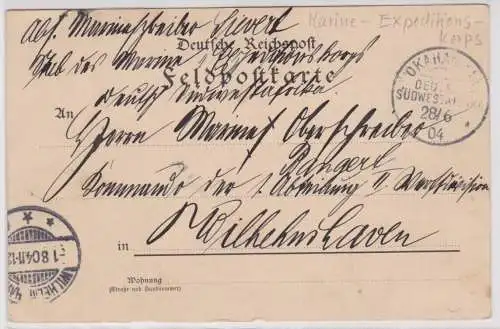 Abs. Marineschreiber Sievert
Marine-Expeditions-
Korps
Deutsche Reichspost
Stab des Marine Expeditionskorps
Feldpostkarte
Deutsch Südwestafrika
OKAHAN
DEUT
SÜDWEST
28/6
04
An
Herrn Marine Oberschreiber
Bangert
Kommando der I. Abteilung II. Werftdivision
in Wilhelmshaven
WILHELM
1.8.04.11-12
Wohnung
(Straße und Hausnummer)